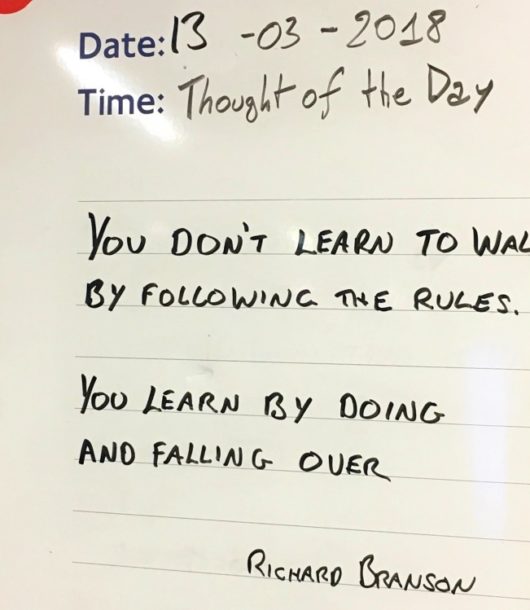 Date: 13 -03 - 2018
Time: Thought of the Day
YOU DON'T LEARN TO WAL
BY FOLLOWING THE RULES.
YOU LEARN BY DOING
AND FALLING OVER
RICHARD BRANSON